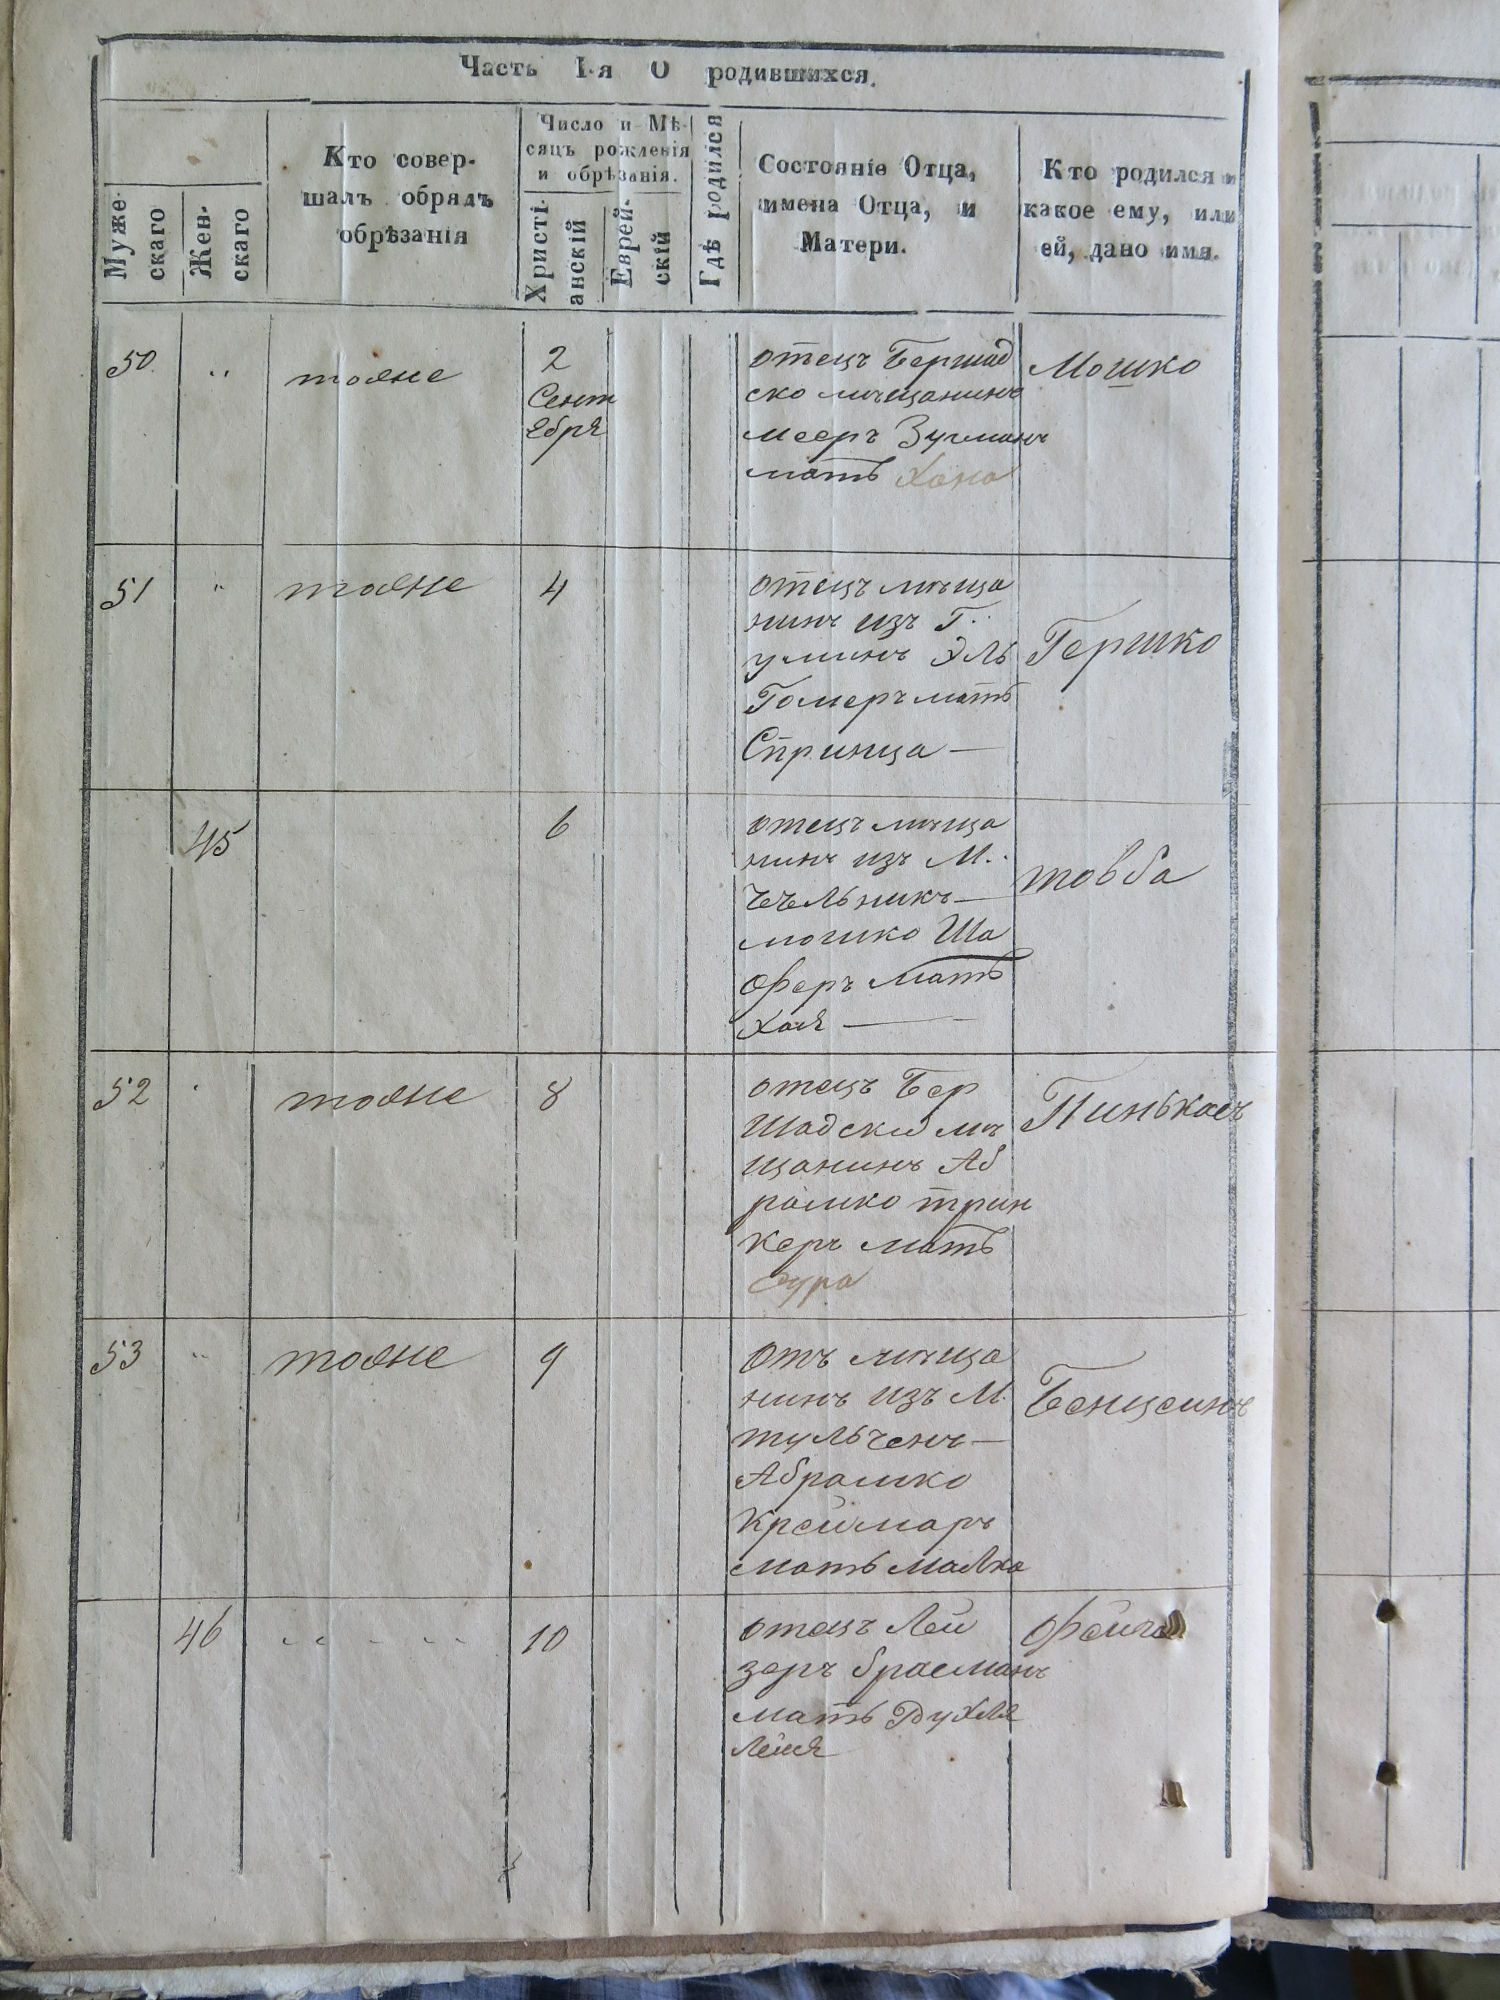 Часть I-я О родившихся.
Муже-
скаго
Жен-
скаго
Кто совер-
шалъ обрядъ
обрѣзанія
Число и Мѣ-
сяцъ рожденія
и обрѣзанія.
Христі-
анскій
Еврей-
скій
Гдѣ родился
Состояніе Отца,
имена Отца, и
Матери.
Кто родился и
какое ему, или
ей, дано имя.
50
тояне
2
Сент
ебря
отецъ Бершад
ско мѣщанинъ
мееръ Зугманъ
мать Хана
Мошко
51
тояне
4
отецъ мѣща
нинъ изъ Г.
уминъ Эль
Гомеръ мать
Спринца —
Гершко
45
6
отецъ мѣща
нинъ изъ М.
Чечельникъ —
мошко Ша
феръ мать
хая —
товба
52
тояне
8
отецъ Бер
шадски мѣ
щанинъ Аб
рамко трин
керъ мать
сура
Пинькасъ
53
тояне
9
отъ мѣща
нинъ изъ М.
тульченъ —
Абрамко
Креймаръ
мать малка
Бенцеинъ
46
10
отецъ Лей
зеръ брасманъ
мать Рухля
Лея
фейга